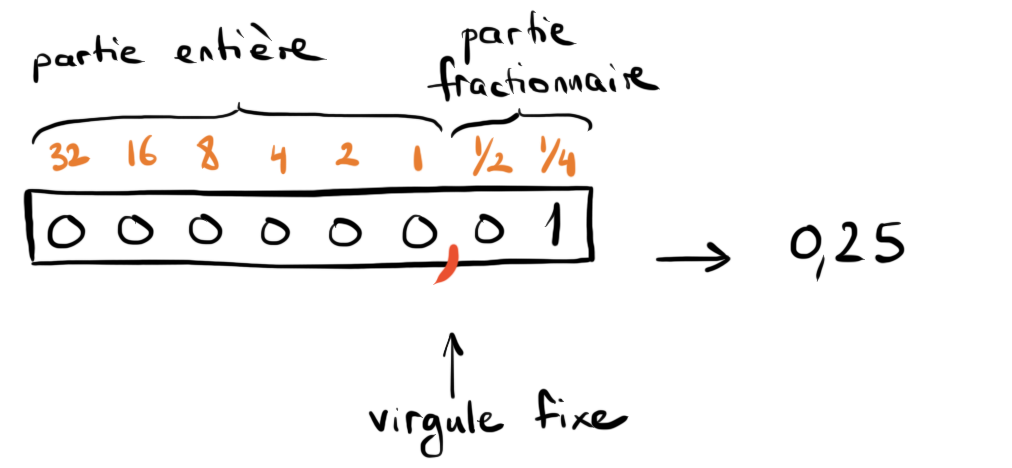 partie entière
partie
fractionnaire
32 16 8 4 2 1 1/2 1/4
0 0 0 0 0 0 , 0 1 → 0,25
virgule fixe